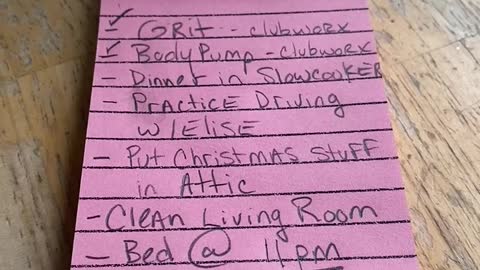 ✓ GRit -- clubworx
✓ BodyPump - clubworx
- Dinner in SlowcookER
- PRActicE DRiving
w/ElisE
- Put ChRistmAs StuFF
in Attic
- CleAn Living Room
- Bed @ 11 pm